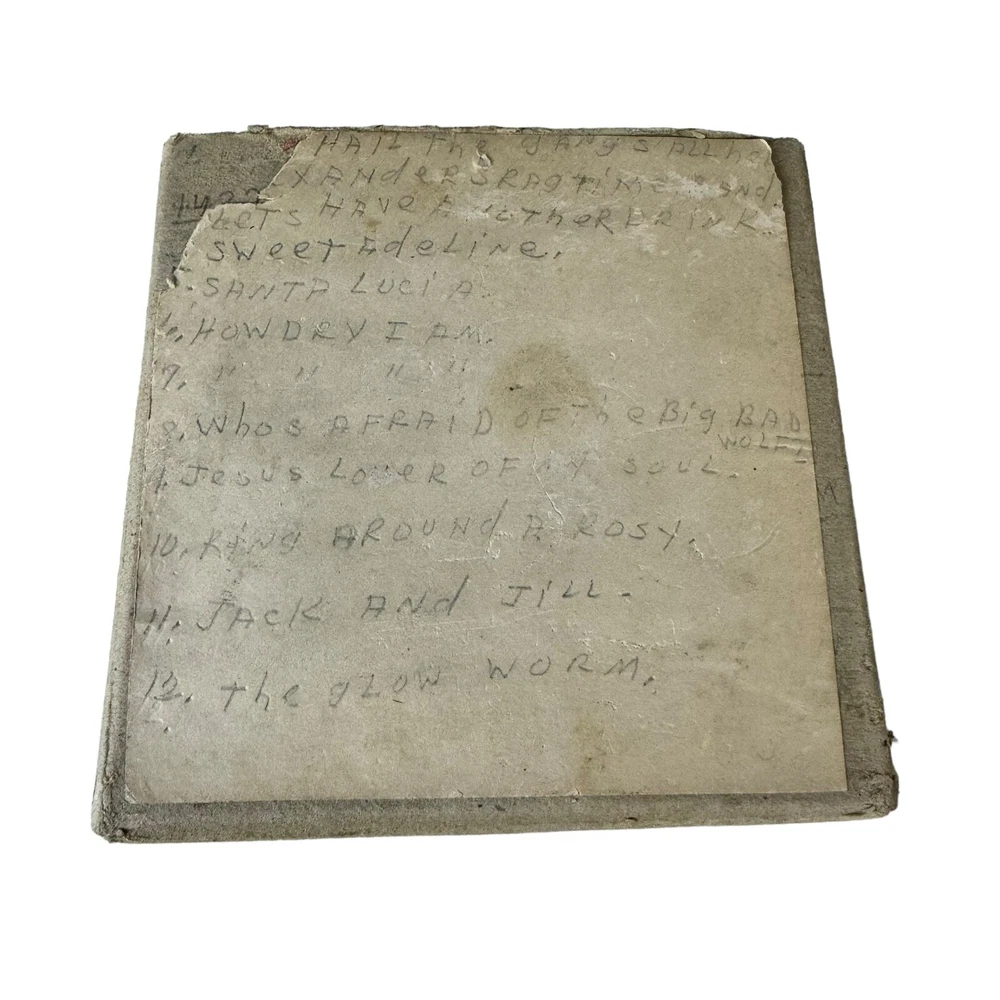 HAIL The gANg S ALL he
XANdeRS RAgTiMe BANd.
LeTS HAVe A NOTheR DRiNK.
SWeeT AdeLiNe.
5. SANTA LUCiA.
6. HOW DRY I AM.
7. " " " "
8. Whos AFRAiD OF The Big BAD
WOLF?
9. Jesus LOVeR OF MY SOUL.
10. RiNg AROUNd A ROSY.
11. JACK ANd JiLL.
12. The gLOW WORM.